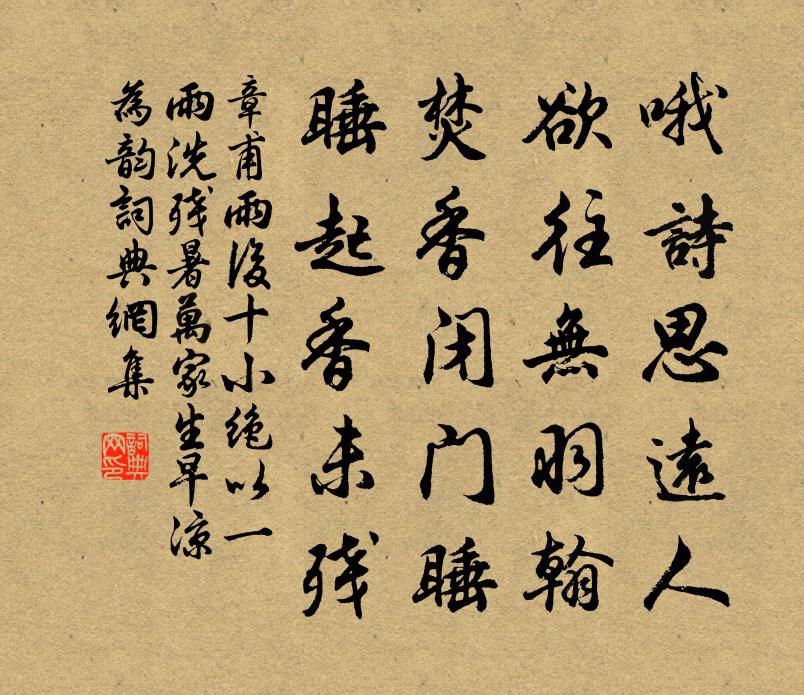 哦詩思遠人
欲往無羽翰
焚香闭门睡
睡起香未残
章甫雨後十小绝以一
雨洗残暑萬家生早凉
為韵詞典網集
詞典网印